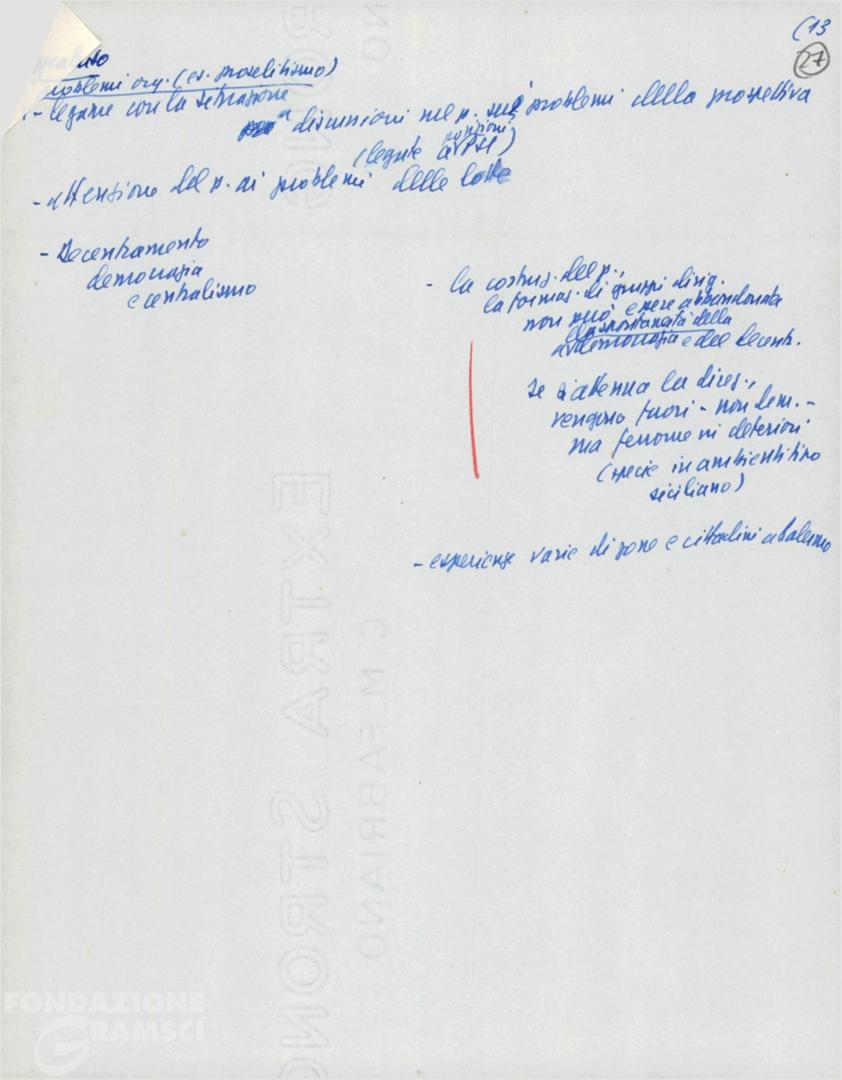 (13
27
problemi org. (es. proselitismo)
- legame con la situazione
a discussioni nel p. sui problemi della prospettiva
(legate a posizioni PSI)
- attenzione del p. ai problemi delle lotte
- Decentramento
democrazia
e centralismo
- la costruz. del p.,
la formaz. di gruppi dirig.
non può essere abbandonata
alla spontaneità della
democrazia e del decentr.
se si attenua la direz.,
vengono fuori - non dem. -
ma fenomeni deteriori
(specie in ambiente tipo
siciliano)
- esperienze varie di zone e cittadini a Palermo
EXTRA STRONG
C. M. FABRIANO
FONDAZIONE
GRAMSCI